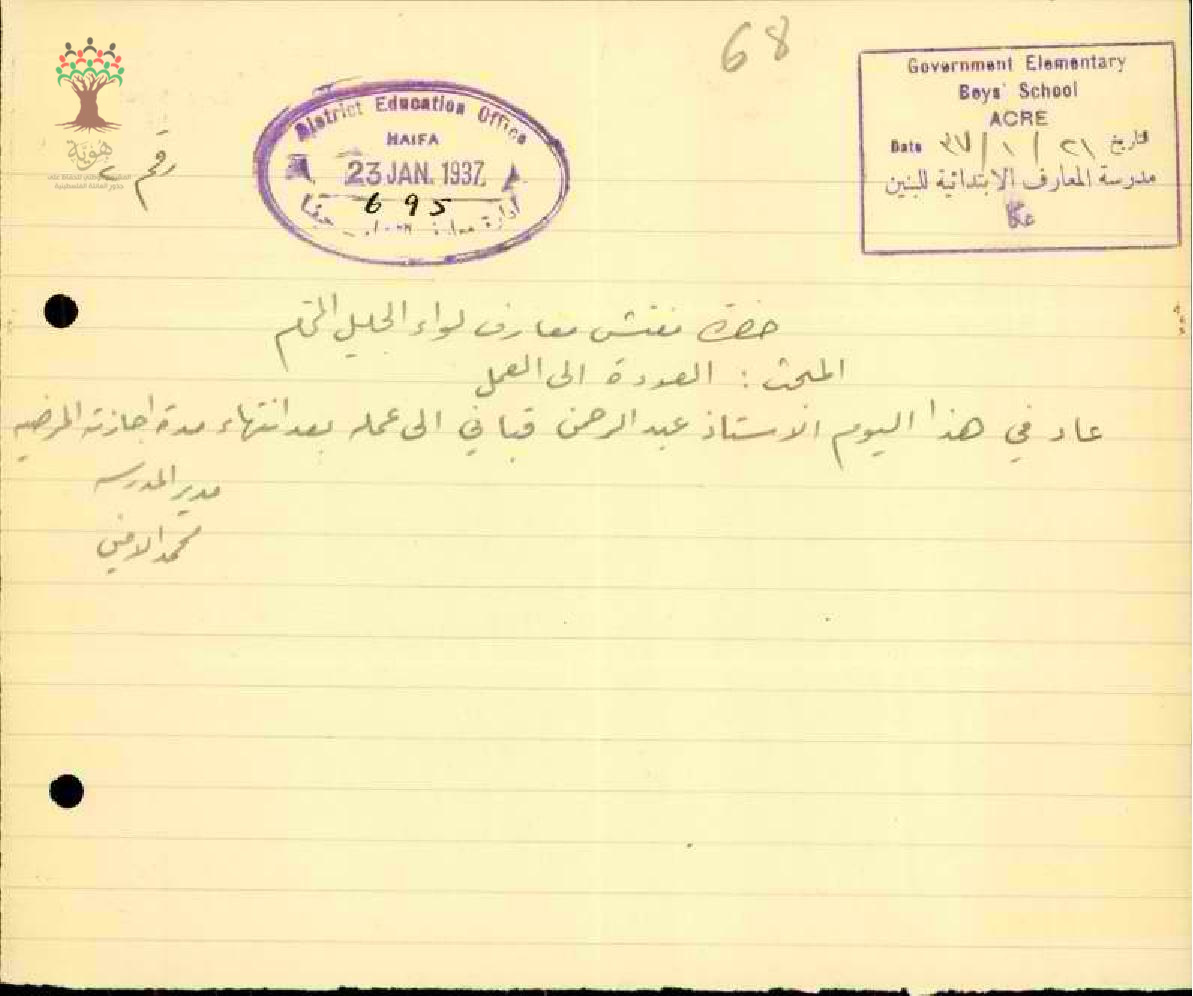 68
Government Elementary
Boys' School
ACRE
Date ٣٧/١/٢١ تاريخ
مدرسة المعارف الابتدائية للبنين
عكا
District Education Office
HAIFA
23 JAN. 1937
695
ادارة معارف حيفا
هوية
رقم
حضرة مفتش معارف لواء الجليل المحترم
المبحث : العودة الى العمل
عاد في هذا اليوم الاستاذ عبد الرحمن قباني الى عمله بعد انتهاء مدة اجازته المرضيه
مدير المدرسه
محمد الامين